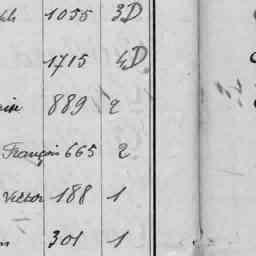 1055 3D
1715 4D
889 2
François 665 2
Victor 188 1
301 1